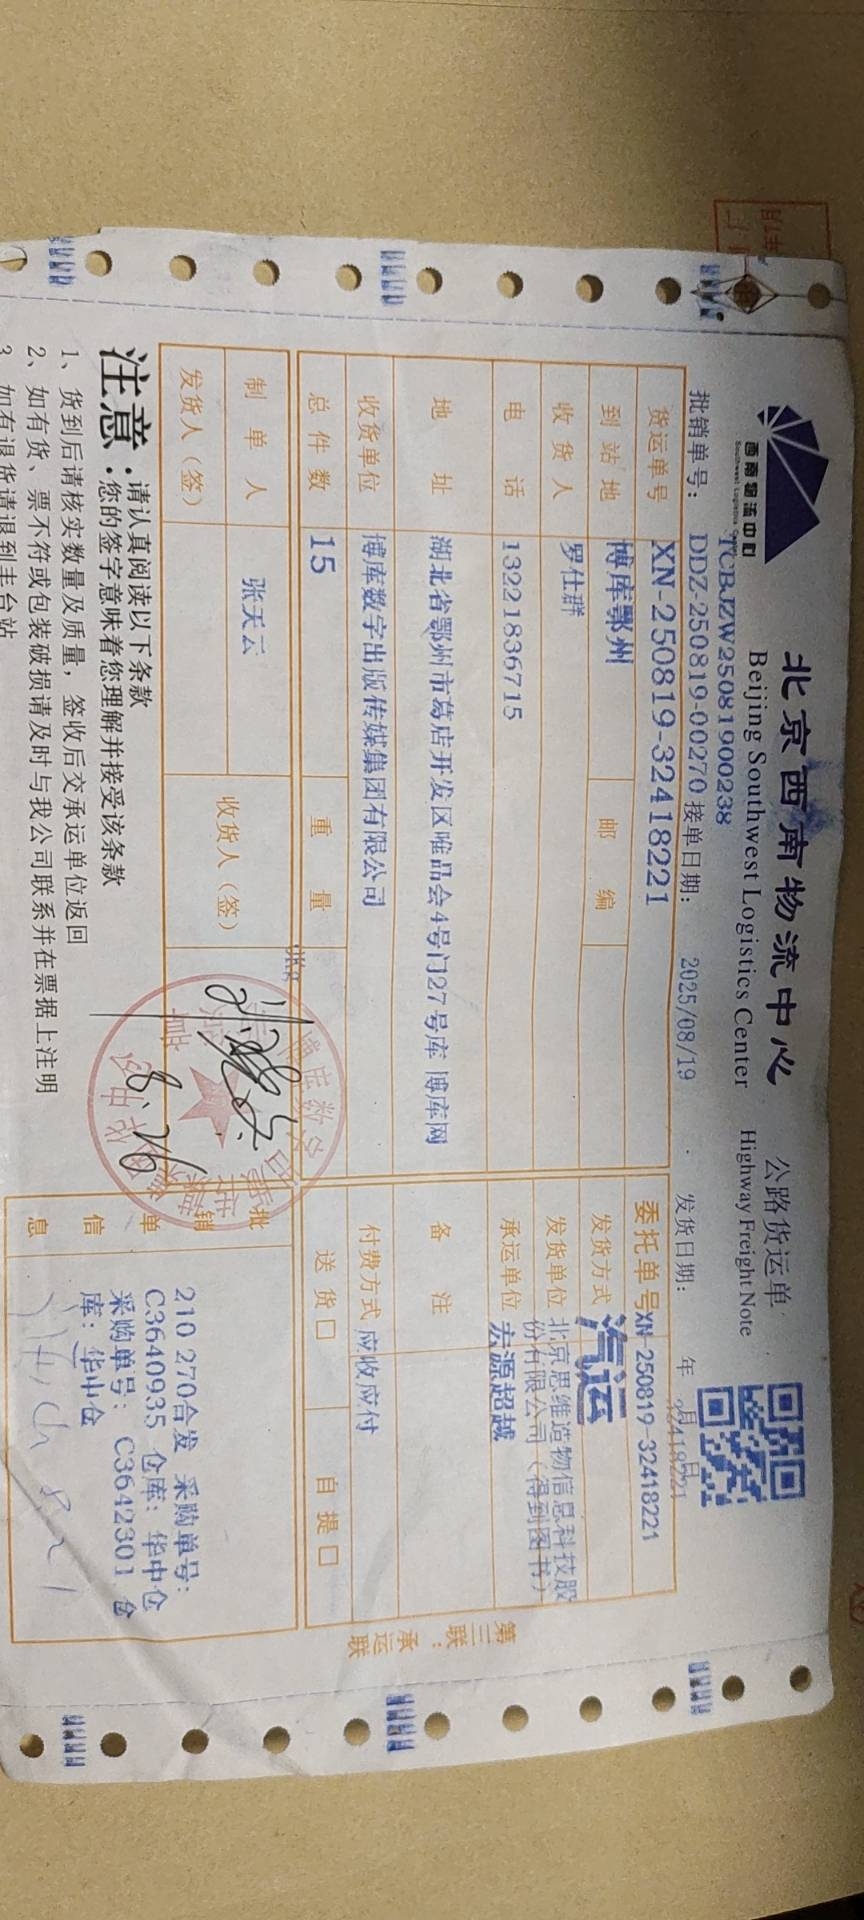 西南物流中心
Southwest Logistics Center
北京西南物流中心
Beijing Southwest Logistics Center
公路货运单
Highway Freight Note
TCBJZW25081900238
批销单号: DDZ-250819-00270 接单日期: 2025/08/19 发货日期: 年 月 日
32418221
货运单号 XN-250819-32418221 委托单号 XN-250819-32418221
到站地 博库鄂州 邮编 发货方式 汽运
收货人 罗仕群 发货单位 北京思维造物信息科技股份有限公司(得到图书)
电话 13221836715 承运单位 宏源超越
地址 湖北省鄂州市葛店开发区唯品会4号门27号库 博库网 备注
收货单位 博库数字出版传媒集团有限公司 付费方式 应收应付
总件数 15 重量 送货□ 自提□
制单人 张天云 收货人(签)
发货人(签)
批销单信息
210 270合发 采购单号:
C3640935 仓库: 华中仓
采购单号: C3642301 仓
库: 华中仓
注意: 请认真阅读以下条款
您的签字意味着您理解并接受该条款
1、货到后请核实数量及质量，签收后交承运单位返回
2、如有货、票不符或包装破损请及时与我公司联系并在票据上注明
3、如有退货请退到丰台站
第三联：承运联